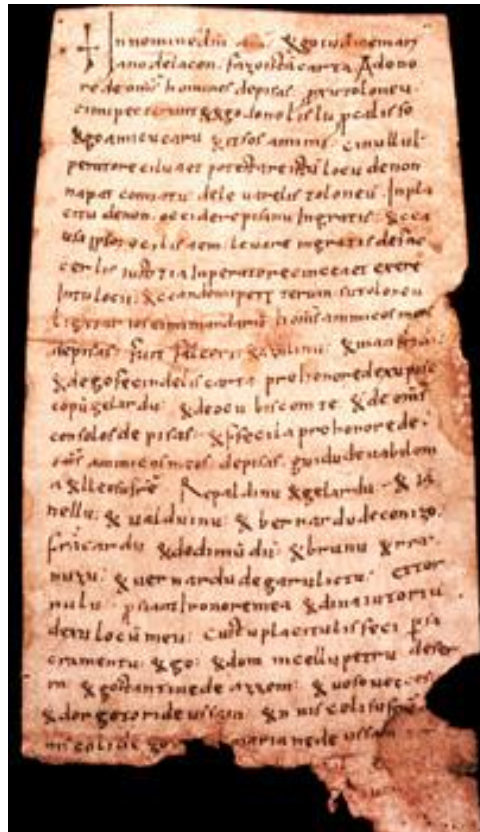 In nomine dñi am̃ &go iudice mari
ano delacon fazo istã carta Ad ono
re de om̃s homines depisas p xu toloneu
cimi pecterunt &&go dono lislu pcalisso
&go amicu caru & itsos ammi ci nullu im
peratore cilu aet potestare istu locu denon
napat comiatu dele varelis toloneu Inpla
citu denon occidere pisanu Ingratis &cca
usa ipsoro cilis aem levare ingratis defac
cerlis iustitia Inperatore cince aet exere
Intu locu &ccando mi pett terun sutoloneu
ligatarios cimi mandarun homĩs ammicos meos
depisas fuit falceri &azulinu &manfridi
&dego fecindelis carta pro honore dexu pisc
copũ gelardu &deocu biscomte & de om̃s
consolos de pisas &ffecila pro honore de
om̃s ammicos meos depisas guidu de uabiloni
a &lleo su frẽ Repaldinu &gelardu & ia
nellu & ualduinu & bernardu deconizo
frãcardu &dodimũdu &brunu &rra
nuzu &uernardu degarulictu ettor
nulu psiant Inonore mea &dinaiutoriu
dexu locũ meu custu placitu lis feci psa
cramentu &go &domnicellu petru deser
ra &gostantine de azzem &uoso ueccesu
&dorgotori deussam &nniscoli su frẽ
niscoli de mariane de ussam